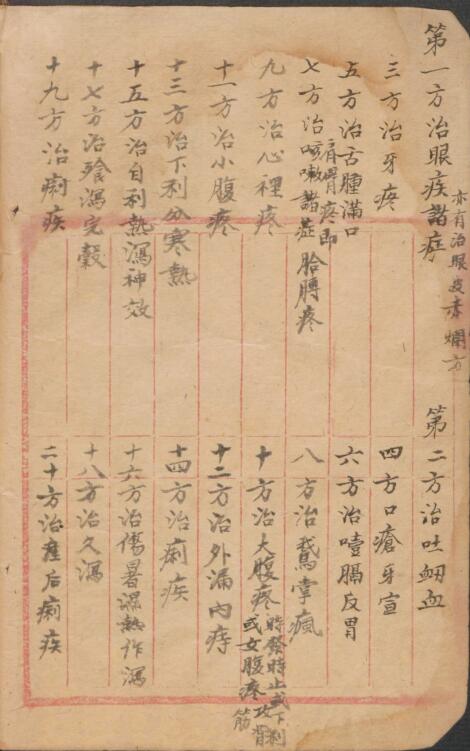 第一方治眼疾諸症
亦有治眼皮赤爛方
第二方治吐衂血
三方治牙疼
四方口瘡牙宣
五方治舌腫滿口
六方治噎膈反胃
七方治咳嗽諸症
肩臂疼即
胳膊疼
八方治鵞掌瘋
九方治心裡疼
十方治大腹疼
時發時止或下利
或女腹疼攻背
筋
十一方治小腹疼
十二方治外漏內痔
十三方治下利分寒熱
十四方治痢疾
十五方治自利熱瀉神效
十六方治傷暑濕熱作瀉
十七方治飱瀉完穀
十八方治久瀉
十九方治痢疾
二十方治產后痢疾